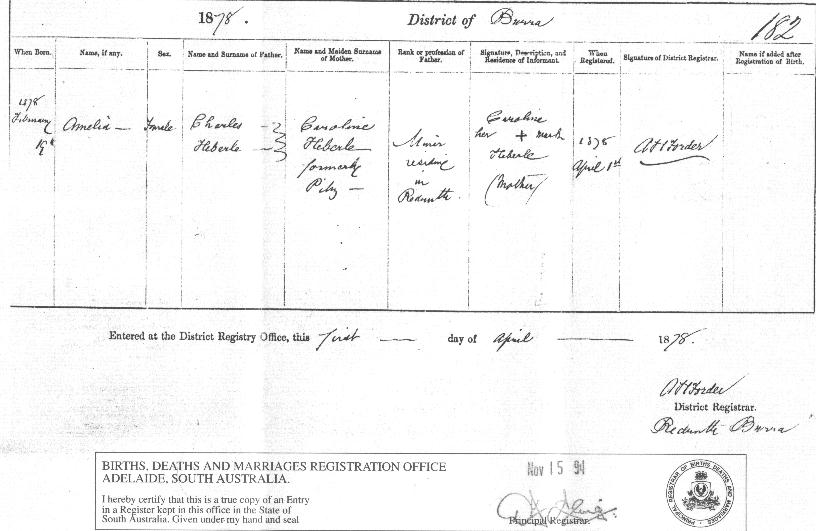 1878. District of Burra 182
When Born. Name, if any. Sex. Name and Surname of Father. Name and Maiden Surname of Mother. Rank or profession of Father. Signature, Description, and Residence of Informant. When Registered. Signature of District Registrar. Name if added after Registration of Birth.
1878
February
19th
Amelia —
Female
Charles
Heberle
Caroline
Heberle
formerly
—
Miner
residing
in
Redruth.
Caroline
her + mark
Heberle
(Mother)
1878
April 1st
A H Forder
Entered at the District Registry Office, this first — day of April — 1878.
A H Forder
District Registrar.
Redruth Burra
BIRTHS, DEATHS AND MARRIAGES REGISTRATION OFFICE
ADELAIDE, SOUTH AUSTRALIA.
I hereby certify that this is a true copy of an Entry
in a Register kept in this office in the State of
South Australia. Given under my hand and seal
NOV 15 94
Principal Registrar.
PRINCIPAL REGISTRAR OF BIRTHS DEATHS AND MARRIAGES